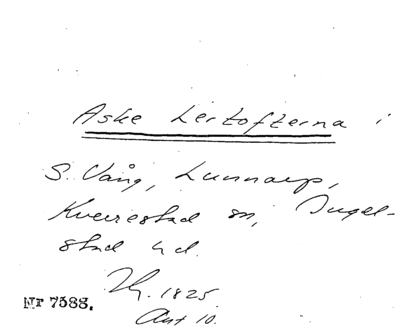 Aske Lertofterna i
S. Vång, Lunnarp,
Kverrestad sn, Ingel-
stad hd.
1825
Akt 10.
Nr 7588.